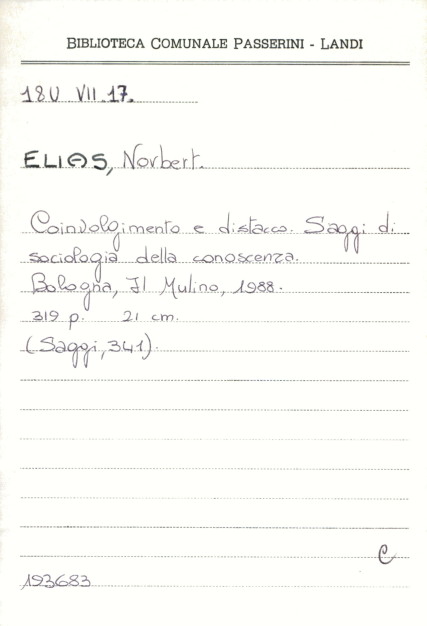 BIBLIOTECA COMUNALE PASSERINI - LANDI
18U VII.17.
ELIAS, Norbert.
Coinvolgimento e distacco. Saggi di
sociologia della conoscenza.
Bologna, Il Mulino, 1988.
319 p. 21 cm.
(Saggi, 341).
C
193683